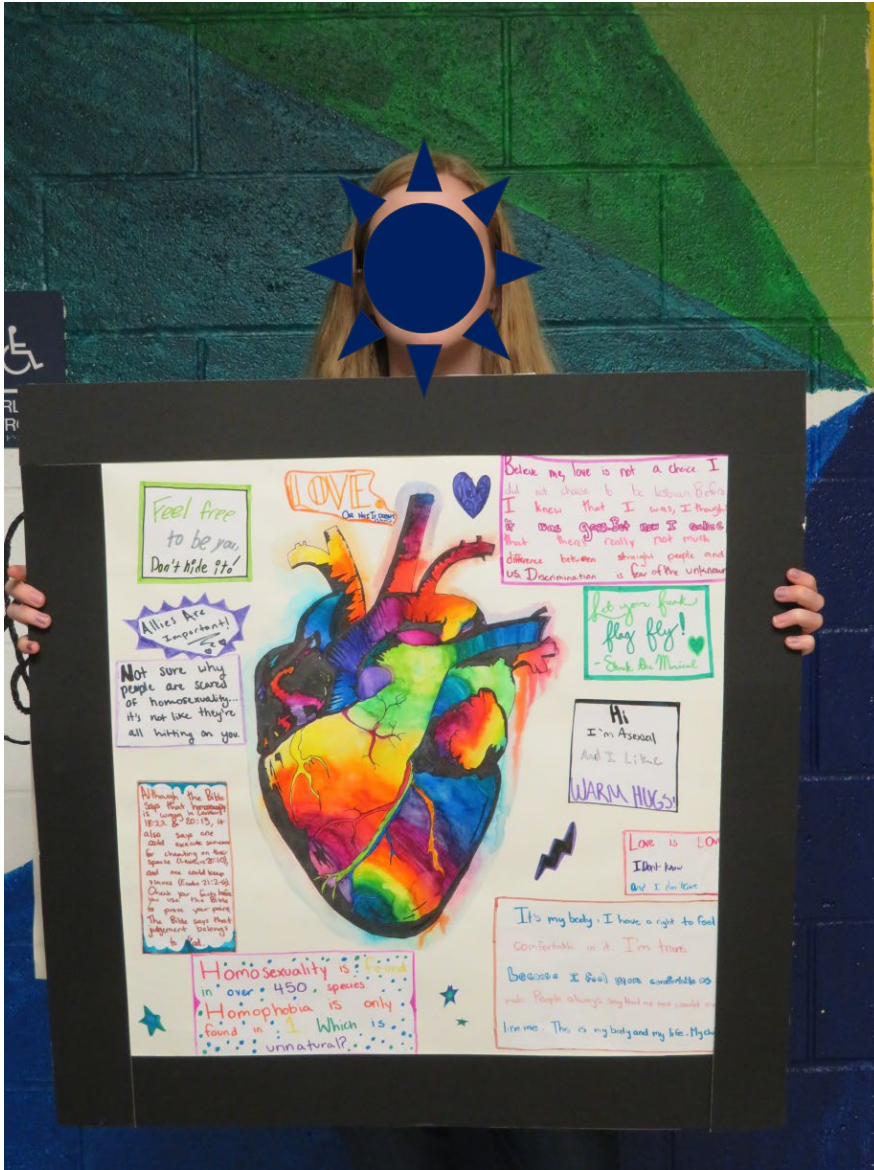 Feel free
to be you,
Don't hide it!
LOVE.
OR NOT
Believe me, love is not a choice I
did not choose to be lesbian Before
I knew that I was, I though
it was gross. But now I
that there really not much
difference between straight people and
us. Discrimination is fear of the unknown
Allies Are
Important!
Let your freak
flag fly!
- Shrek the Musical
Not sure why
people are scared
of homosexuality...
it's not like they're
all hitting on you
Hi
I'm Asexual
And I Like
WARM HUGS!
Although the Bible
says that homosexuality
is wrong in
18:22 & 20:13, it
also says one
could execute someone
for cheating on their
spouse
and one could keep
slaves (Exodus 21:2-6).
Check your facts before
you use the Bible
to prove your point.
The Bible says that
judgement belongs
to God.
Love is Lov
I Don't know
and I don't
It's my body. I have a right to feel
comfortable in it. I'm trans
Because I feel more comfortable as
male. People always say
like me. This is my body and my life. My
Homosexuality is found
in over 450 species
Homophobia is only
found in 1 Which is
unnatural?